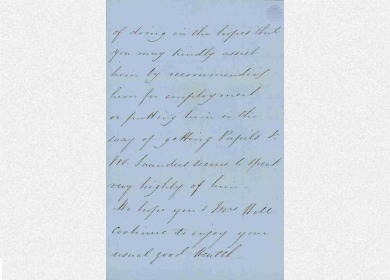 of doing in the hopes that
you may kindly assist
him by recommending
him for employment
or putting him in the
way of getting Pupils &
Mr. Saunders seems to speak
very highly of him.
We hope you & Mrs Hill
continue to enjoy your
usual good health